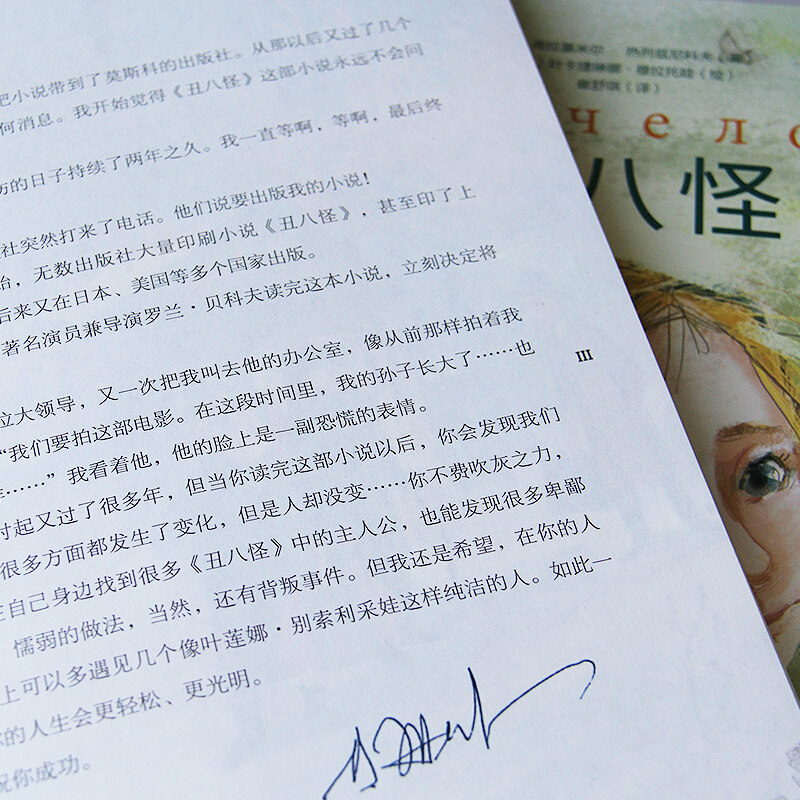 把小说带到了莫斯科的出版社。从那以后又过了几个
何消息。我开始觉得《丑八怪》这部小说永远不会问
的日子持续了两年之久。我一直等啊，等啊，最后终
社突然打来了电话。他们说要出版我的小说！
始，无数出版社大量印刷小说《丑八怪》，甚至印了上
后来又在日本、美国等多个国家出版。
著名演员兼导演罗兰·贝科夫读完这本小说，立刻决定将
位大领导，又一次把我叫去他的办公室，像从前那样拍着我
“我们要拍这部电影。在这段时间里，我的孙子长大了……也
……”我看着他，他的脸上是一副恐慌的表情。
时起又过了很多年，但当你读完这部小说以后，你会发现我们
很多方面都发生了变化，但是人却没变……你不费吹灰之力，
在自己身边找到很多《丑八怪》中的主人公，也能发现很多卑鄙
懦弱的做法，当然，还有背叛事件。但我还是希望，在你的人
上可以多遇见几个像叶莲娜·别索利采娃这样纯洁的人。如此一
的人生会更轻松、更光明。
祝你成功。
III
热列兹尼科夫
（绘）
（译）
чело
八怪